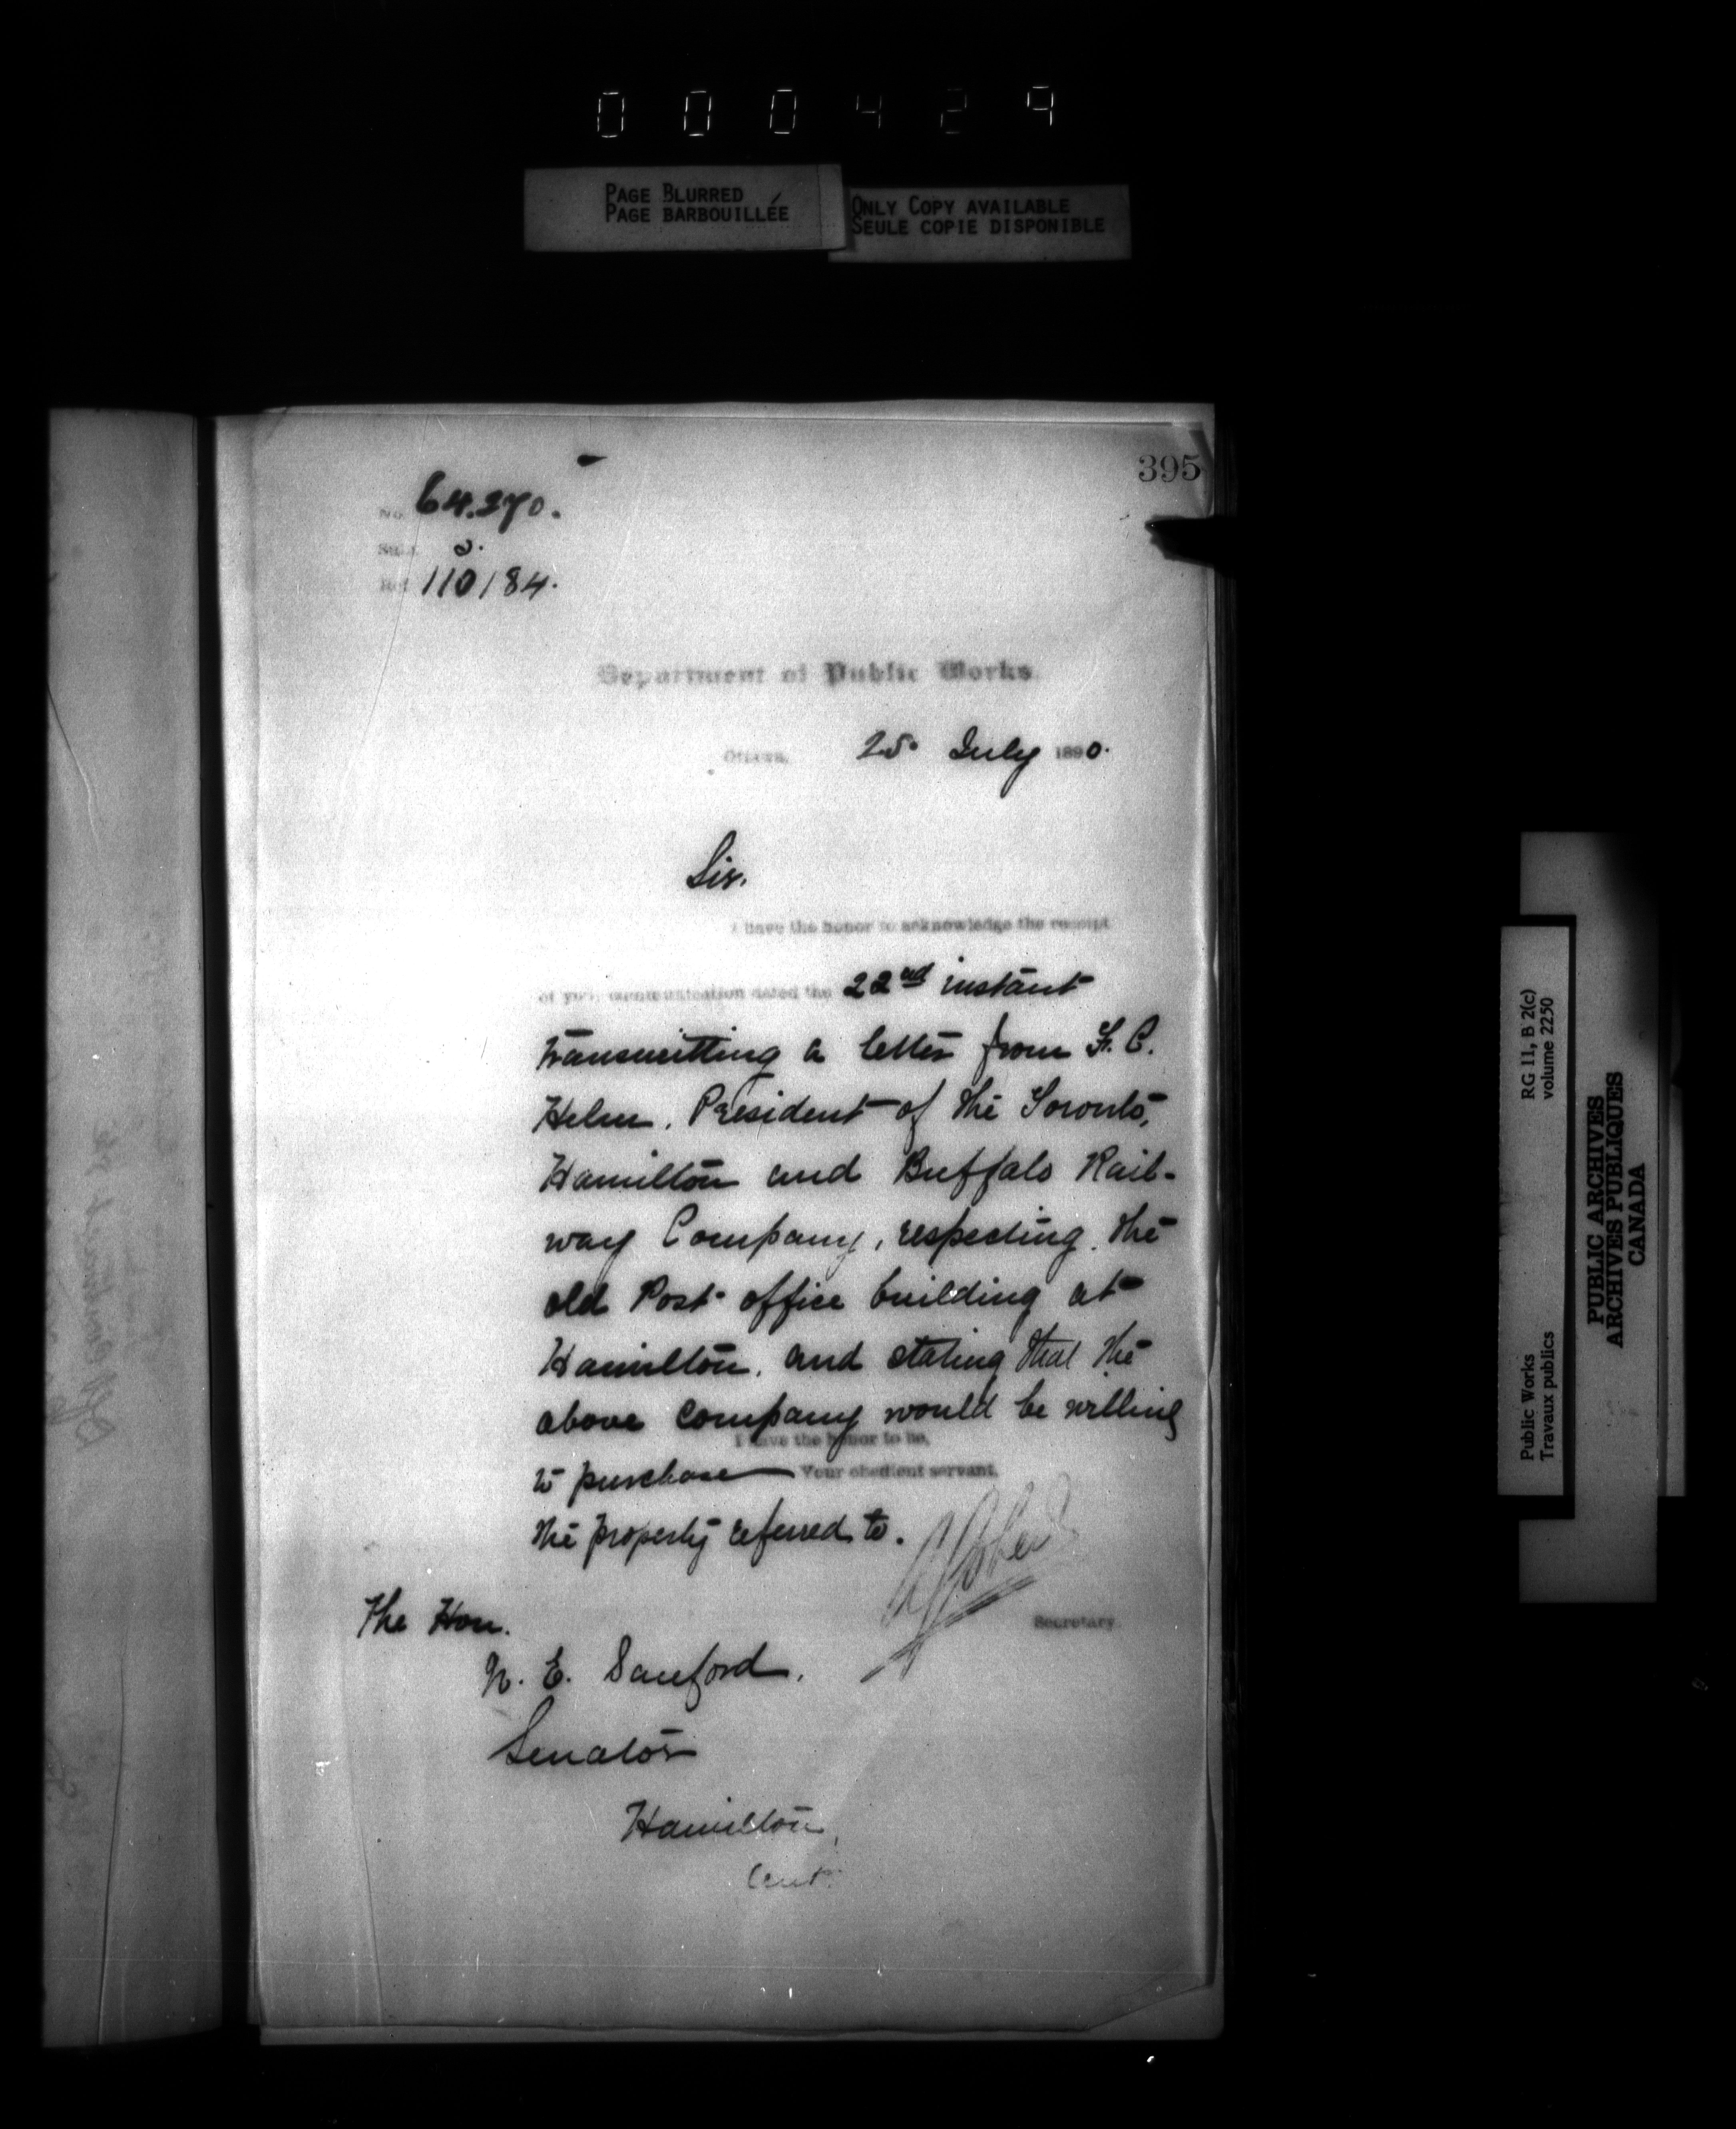 000429
PAGE BLURRED
PAGE BARBOUILLÉE
ONLY COPY AVAILABLE
SEULE COPIE DISPONIBLE
395
No. 64.270.
Subj. 2.
Ref. 110184.
Department of Public Works.
Ottawa, 25. July 1890.
Sir.
I have the honor to acknowledge the receipt
of your communication dated the 22nd instant
transmitting a letter from F. C.
Helm, President of the Toronto,
Hamilton and Buffalo Rail-
way Company, respecting the
old Post office building at
Hamilton, and stating that the
above company would be willing
I have the honor to be,
to purchase Your obedient servant,
the property referred to.
Secretary.
The Hon.
W. E. Sanford,
Senator
Hamilton,
Ont.
Public Works
Travaux publics
RG 11, B 2(c)
volume 2250
PUBLIC ARCHIVES
ARCHIVES PUBLIQUES
CANADA